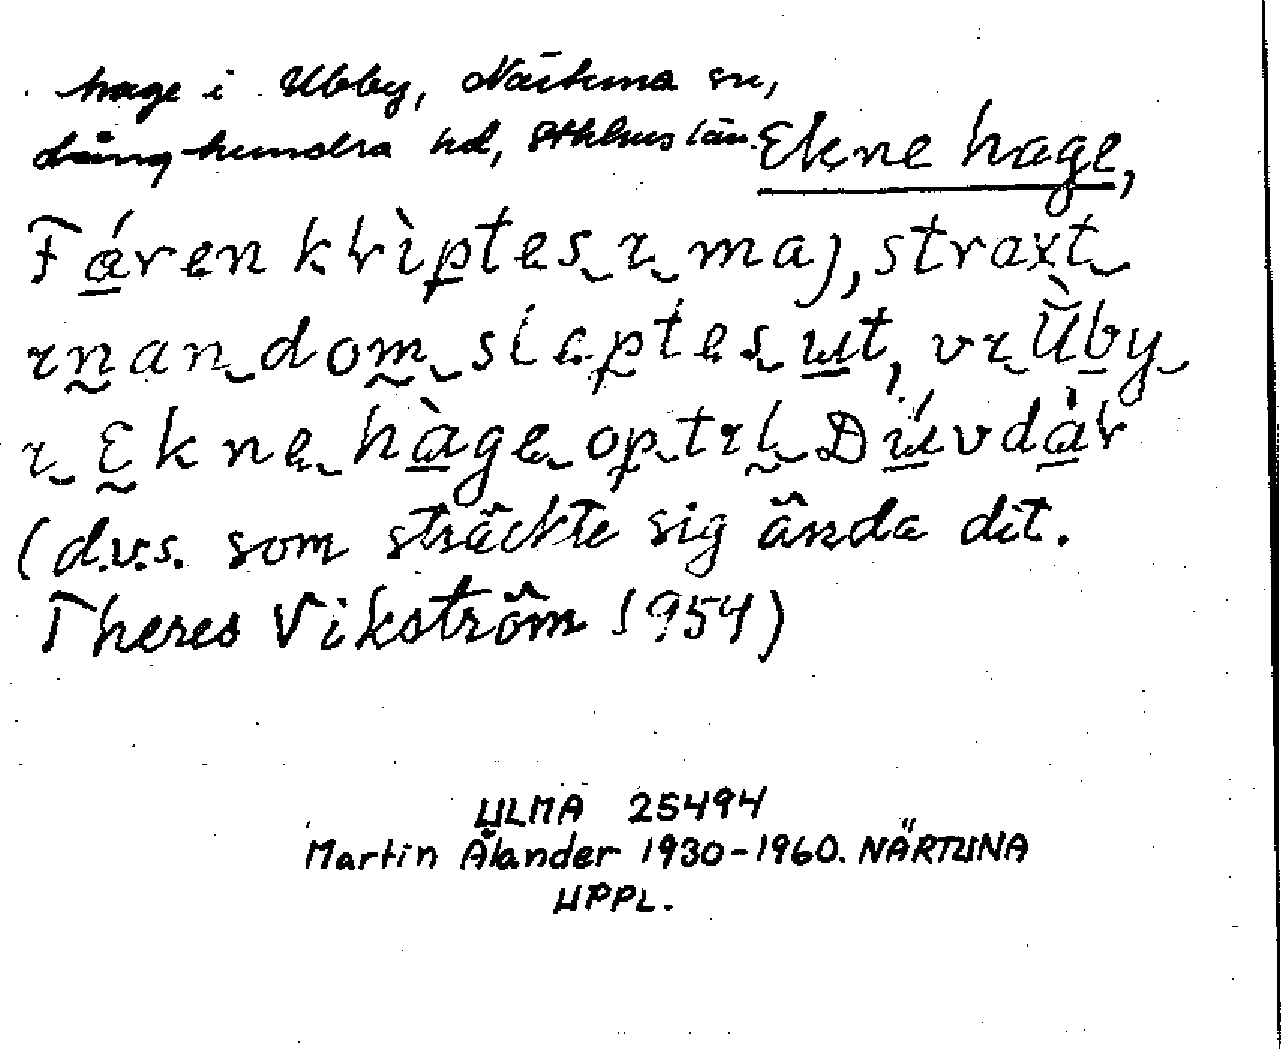 hage i Ubby, Närtuna sn,
Långhundra hd, Sthlms län. Ekne hage,
Fáren klìptes ɩ maj, straxt
ɩnan dom släptes ut, vɩ Ùby
ɩ Ekne hàge op tɩl Dúvdàl
(d.v.s. som sträckte sig ända dit.
Theres Vikström 1954)
ULMA 25494
Martin Ålander 1930-1960. NÄRTUNA
UPPL.